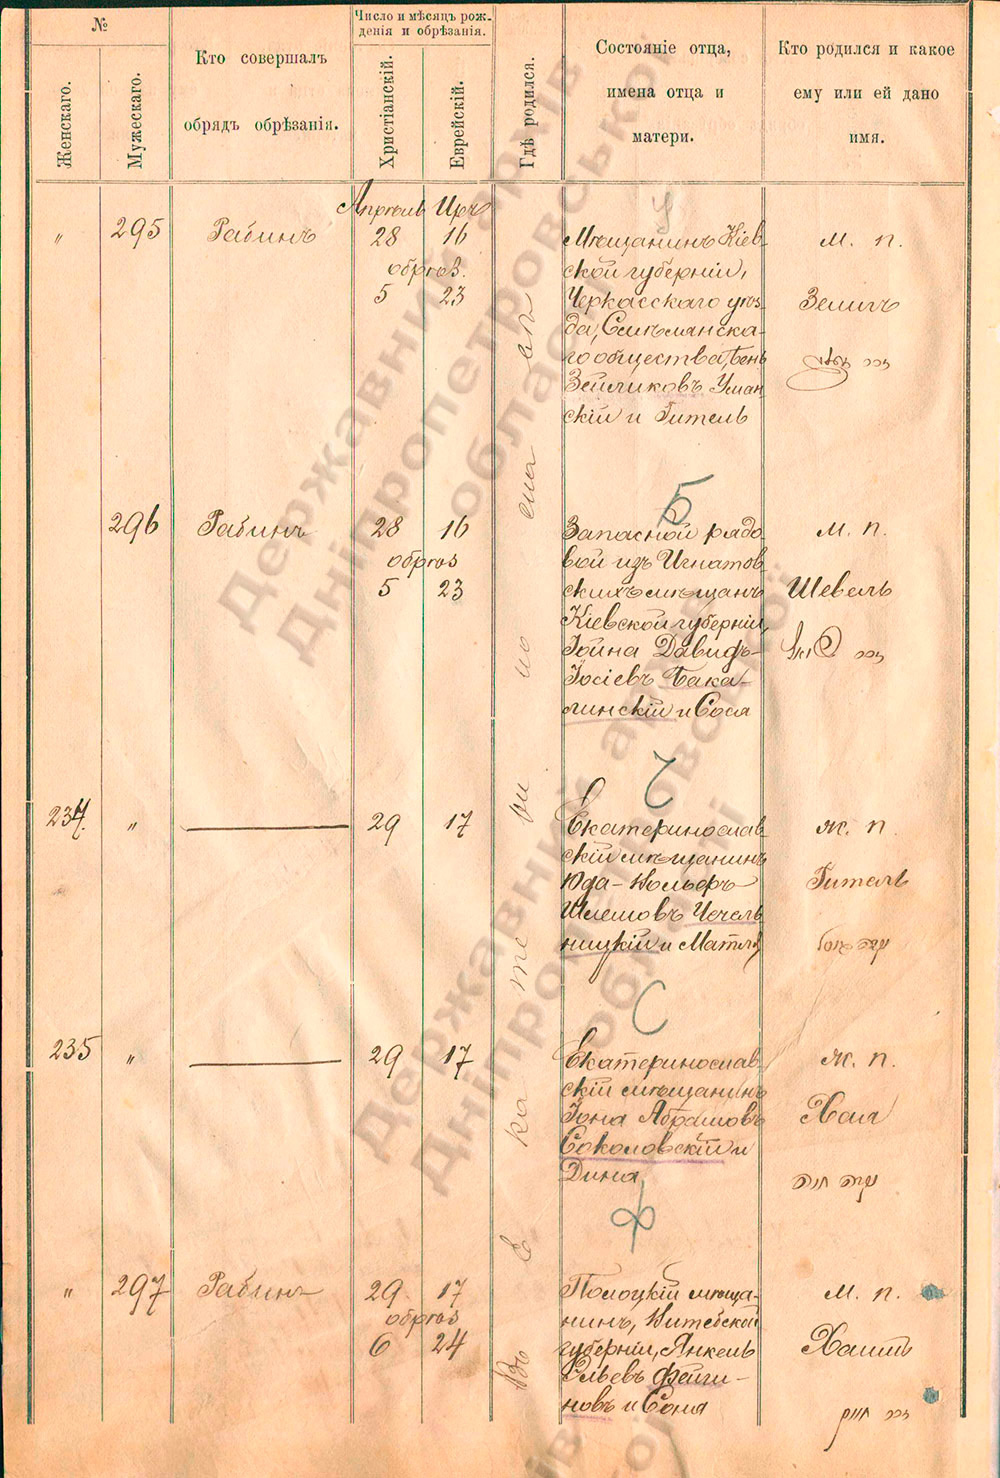 №
Женскаго.
Мужескаго.
Кто совершалъ
обрядъ обрѣзанія.
Число и мѣсяцъ рож-
денія и обрѣзанія.
Христіанскій.
Еврейскій.
Гдѣ родился.
Состояніе отца,
имена отца и
матери.
Кто родился и какое
ему или ей дано
имя.
въ Екатеринославѣ
Апрѣль Иръ
„ 295 Рабинъ 28 16
обрѣз.
5 23
Мѣщанинъ Кіев-
ской губерніи,
Черкасскаго уѣз-
да, Смѣлянска-
го общества, Бень
Зейликовъ Уман-
скій и Гитель
м. п.
Зелигъ
У
296 Рабинъ 28 16
обрѣз
5 23
Б
Запасной рядо-
вой изъ Игнатов-
скихъ мѣщанъ
Кіевской губерніи,
Іойна Давидъ-
Іосіевъ Бака-
линскій и Сося
м. п.
Шевель
234. „ 29 17
Ч
Екатеринослав-
скій мѣщанинъ
Юда-Вольфъ
Шлемовъ Чечель-
ницкій и Матля
ж. п.
Гитель
235 „ 29 17
С
Екатеринослав-
скій мѣщанинъ
Іона Абрамовъ
Соколовскій и
Дина
ж. п.
Хая
חיה
„ 297 Рабинъ 29 17
обрѣз
6 24
Ф
Полоцкій мѣща-
нинъ, Витебской
губерніи, Янкель
Эльевъ Фейги-
новъ и Соня
м. п.
Хаимъ
Державний архів
Дніпропетровської
області
Державний архів
Дніпропетровської
області